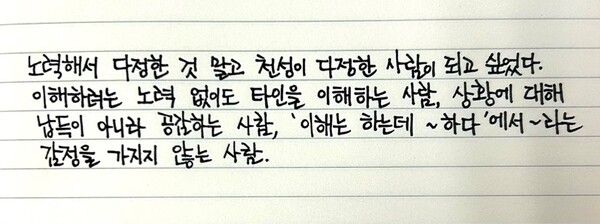 노력해서 다정한 것 말고 천성이 다정한 사람이 되고 싶었다.
이해하려는 노력 없이도 타인을 이해하는 사람, 상황에 대해
납득이 아니라 공감하는 사람, '이해는 하는데 ~하다'에서 ~라는
감정을 가지지 않는 사람.